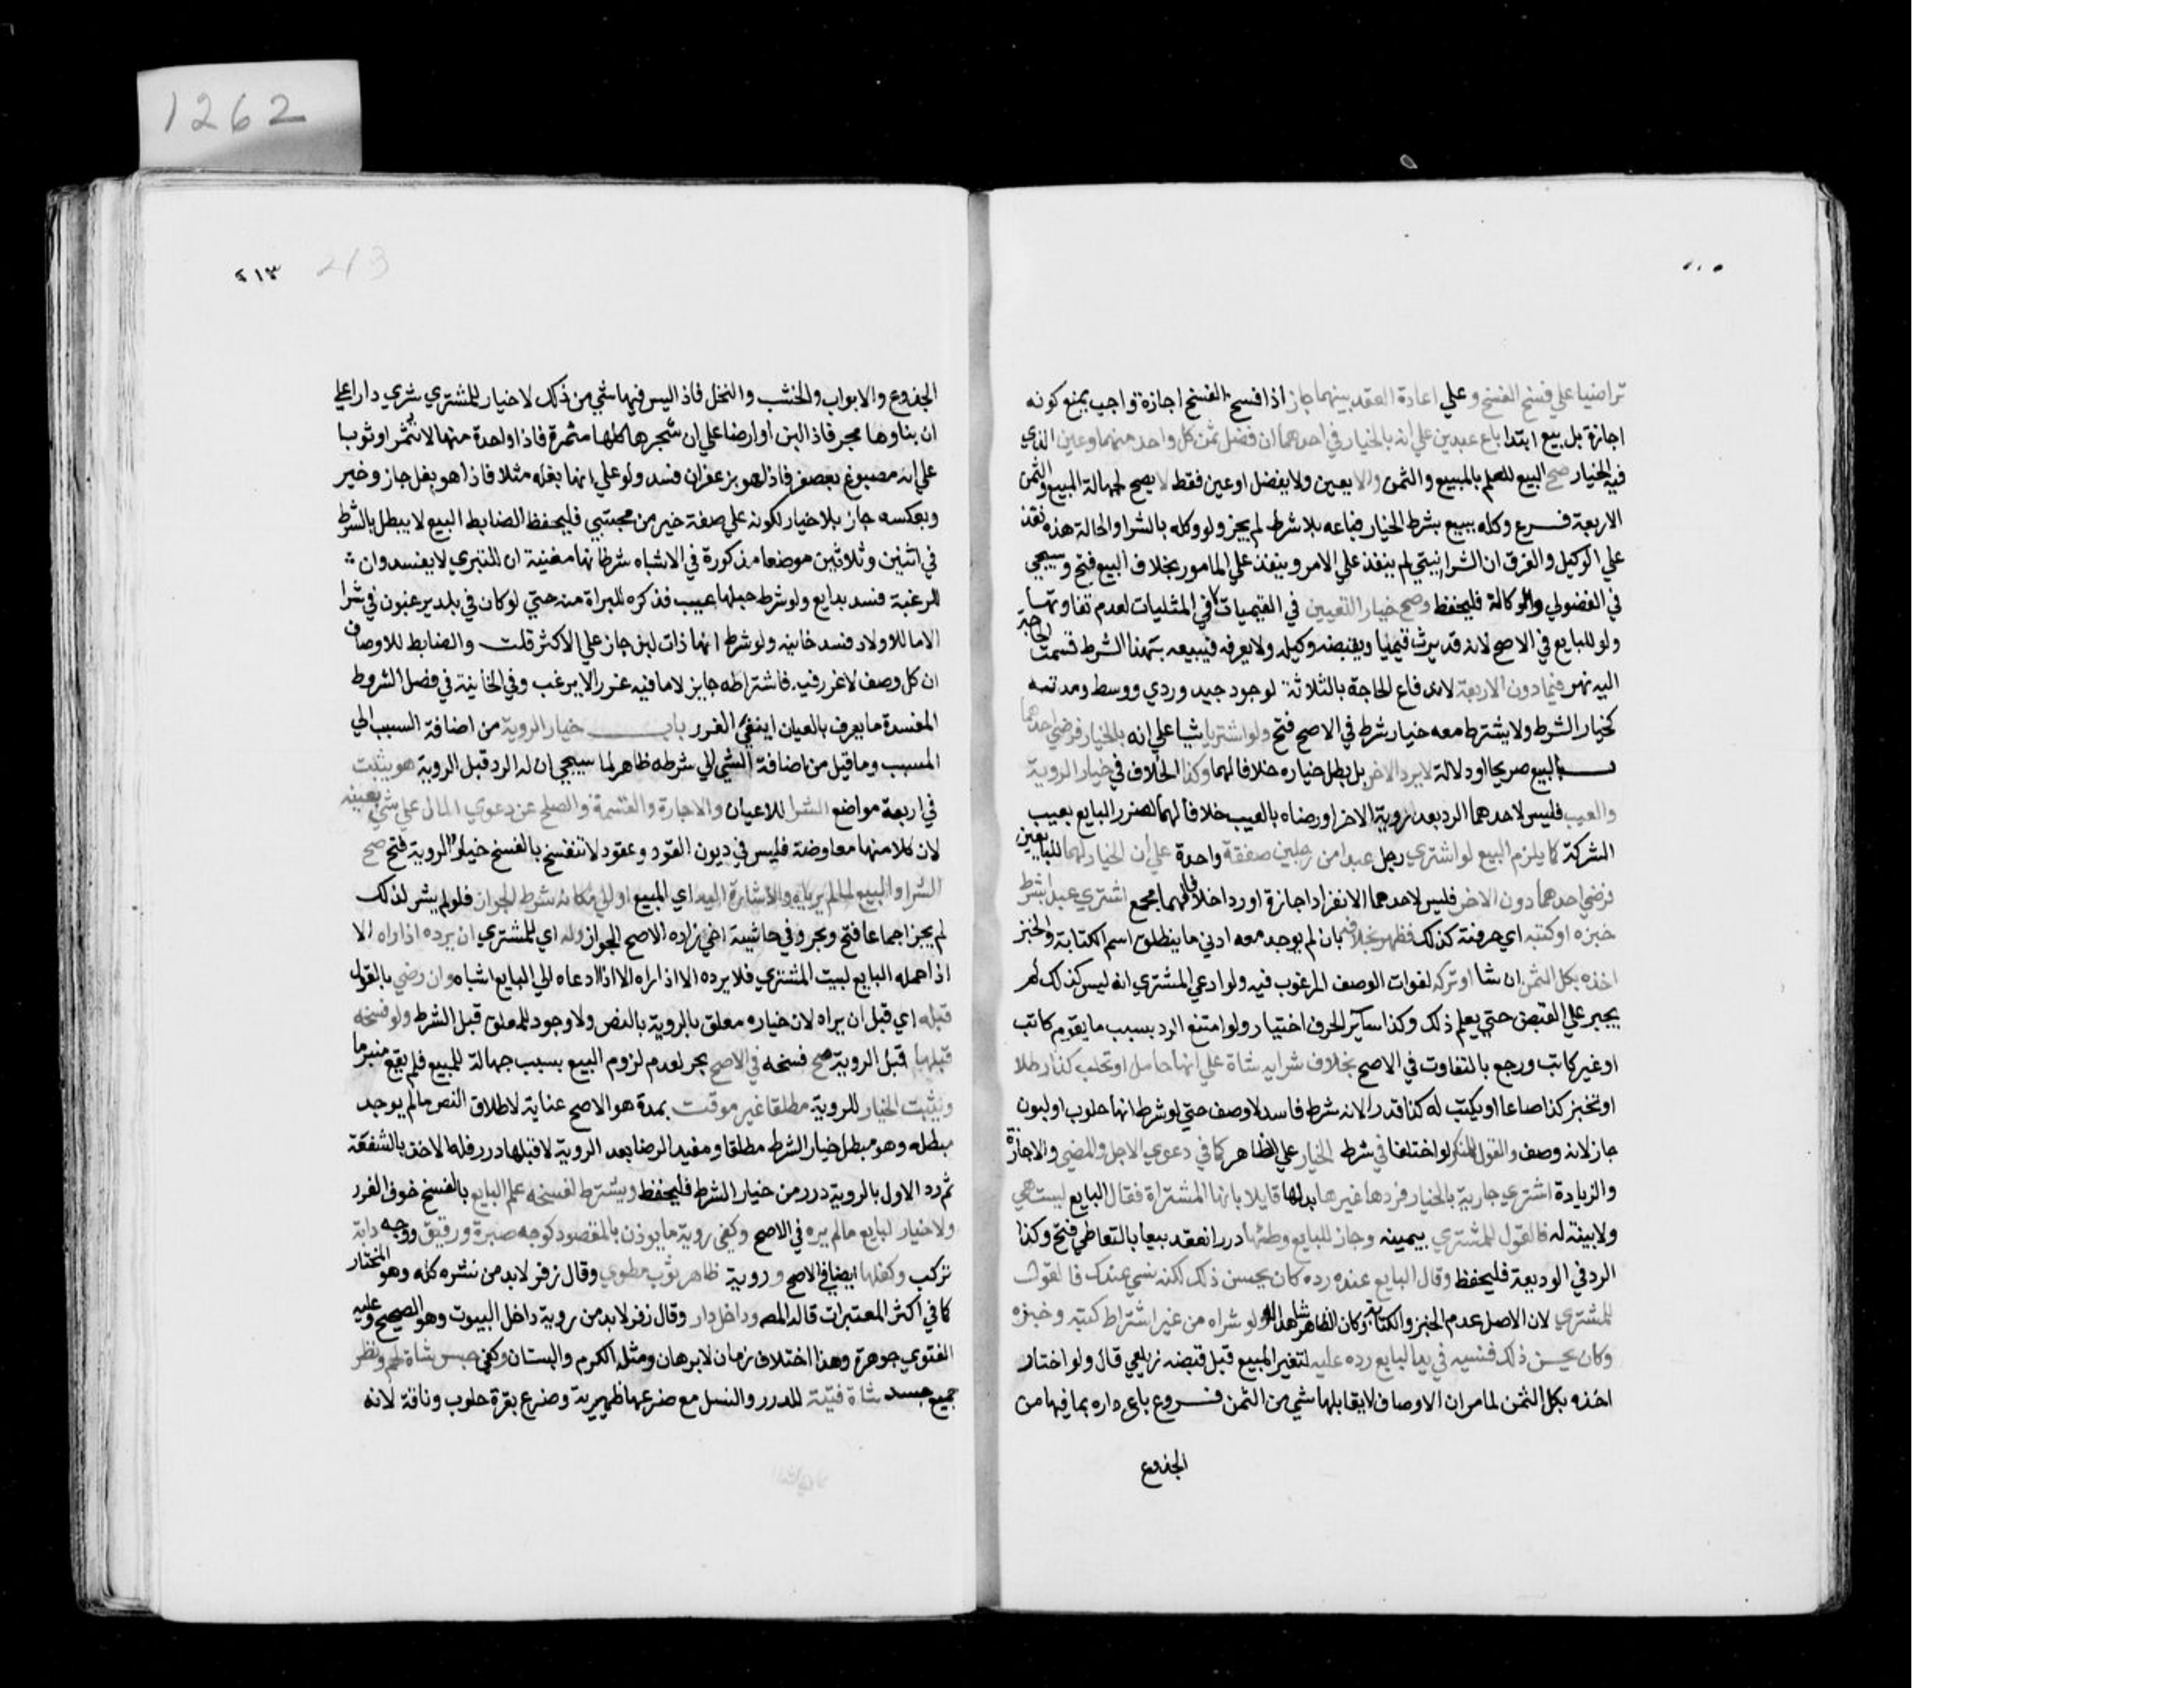 تراضيا علي فسخ الفسخ وعلي اعادة العقد بينهما جاز اذا فسخ الفسخ اجازة واجيب بمنع كونه
اجازة بل بيع ابتدا باع عبدين علي انه بالخيار في احدهما ان فصل ثمن كل واحد منهما وعين الذي
فيه الخيار صح البيع للعلم بالمبيع والثمن والا يعين ولا يفصل او عين فقط لا يصح لجهالة المبيع والثمن
الاربعة فرع وكله ببيع بشرط الخيار فباعه بلا شرط لم يجز ولو وكله بالشرا والحالة هذه نفذ
علي الوكيل والفرق ان الشرا متي لم ينفذ علي الامر وينفذ علي المامور بخلاف البيع فتح وسيجي
في الفضولي والوكالة فليحفظ وصح خيار التعيين في القيميات لا في المثليات لعدم تفاوتها
ولو للبايع في الاصح لانه قد يرث قيميا ويقبضه وكيله ولا يعرفه فيبيعه بهذا الشرط فمست الحاجة
اليه نهر فيما دون الاربعة لاندفاع الحاجة بالثلاثة لوجود جيد وردي ووسط ومدته
كخيار الشرط ولا يشترط معه خيار شرط في الاصح فتح ولو اشتريا شيا علي انه بالخيار فرضي احدهما
بالبيع صريحا او دلالة لا يرد الاخر بل بطل خياره خلافا لهما وكذا الخلاف في خيار الروية
والعيب فليس لاحدهما الرد بعد روية الاخر او رضاه بالعيب خلافا لهما لضرر البايع بعيب
الشركة كما يلزم البيع لو اشتري رجل عبدا من رجلين صفقة واحدة علي ان الخيار لهما للبايعين
فرضي احدهما دون الاخر فليس لاحدهما الانفراد اجازة او ردا خلافا لهما مجمع اشتري عبدا بشرط
خبزه او كتبه اي حرفته كذلك فظهر بخلافه بان لم يوجد معه ادني ما ينطلق اسم الكتابة والخبز
اخذه بكل الثمن ان شا او تركه لفوات الوصف المرغوب فيه ولو ادعي المشتري انه ليس كذلك لم
يجبر علي القبض حتي يعلم ذلك وكذا سائر الحرف اختيار ولو امتنع الرد بسبب ما يقوم كاتب
او غير كاتب ورجع بالتفاوت في الاصح بخلاف شرايه شاة علي انها حامل او تحلب كذا رطلا
او تخبز كذا صاعا او يكتب له كذا قدرا لانه شرط فاسد لا وصف حتي لو شرط انها حلوب او لبون
جاز لانه وصف والقول للمنكر لو اختلفا في شرط الخيار علي الظاهر كما في دعوي الاجل والمضي والاجازة
والزيادة اشتري جارية بالخيار فرد غيرها بدلها قايلا بانها المشتراة فقال البايع ليست هي
ولا بينة له فالقول للمشتري بيمينه وجاز للبايع وطئها درر انعقد بيعا بالتعاطي فتح وكذا
الرد في الوديعة فليحفظ وقال البايع عنده رده كان يحسن ذلك لكنه نسي عندك فالقول
للمشتري لان الاصل عدم الخبز والكتابة وكان الظاهر شاهدا له ولو شراه من غير اشتراط كتبه وخبزه
وكان يحسن ذلك فنسيه في يد البايع رده عليه لتغير المبيع قبل قبضه زيلعي قال ولو اختار
اخذه بكل الثمن لما مر ان الاوصاف لا يقابلها شي من الثمن فروع باع داره بما فيها من
الجذوع
٢١٣
213
الجذوع والابواب والخشب والنخل فاذا ليس فيها شي من ذلك لا خيار للمشتري شري دارا علي
ان بناوها مجر فاذا لبن او ارضا علي ان شجرها كلها مثمرة فاذا واحدة منها لا تثمر او ثوبا
علي انه مصبوغ بعصفر فاذا هو بزعفران فسد ولو علي انها بغلة مثلا فاذا هو بغل جاز وخير
وبعكسه جاز بلا خيار لكونه علي صفة خير من مجتبي فليحفظ الضابط البيع لا يبطل بالشرط
في اثنين وثلاثين موضعا مذكورة في الاشباه شرط انها مغنية ان للتبري لا يفسد وان
للرغبة فسد بدايع ولو شرط حبلها عيب فذكره للبراة منه حتي لو كان في بلد يرغبون في شرا
الاما للاولاد فسد خانيه ولو شرط انها ذات لبن جاز علي الاكثر قلت والضابط للاوصاف
ان كل وصف لا غرر فيه فاشتراطه جايز لا ما فيه غرر الا يرغب وفي الخانية في فصل الشروط
المفسدة ما يعرف بالعيان انتفي الغرر باب خيار الروية من اضافة السبب الي
المسبب وما قيل من اضافة الشي الي شرطه ظاهر لما سيجي ان له الرد قبل الروية هو يثبت
في اربعة مواضع الشرا للاعيان والاجارة والقسمة والصلح عن دعوي المال علي شي بعينه
لان كلا منها معاوضة فليس في ديون العقود وعقود لا تنفسخ بالفسخ خيار الروية فتح صح
الشرا والبيع لما لم يرياه والاشارة اليه اي المبيع او الي مكانه شرط الجواز فلو لم يشر لذلك
لم يجز اجماعا فتح وبحر وفي حاشية اخي زاده الاصح الجواز وله اي للمشتري ان يرده اذا راه الا
اذا حمله البايع لبيت المشتري فلا يرده الا اذا راه الا اذا ادعاه الي البايع اشباه وان رضي بالقول
قبله اي قبل ان يراه لان خياره معلق بالروية بالنص ولا وجود للمعلق قبل الشرط ولو فسخه
قبلها قبل الروية صح فسخه في الاصح بحر لعدم لزوم البيع بسبب جهالة المبيع فلم يقع منبرما
ويثبت الخيار للروية مطلقا غير موقت بمدة هو الاصح عناية لاطلاق النص ما لم يوجد
مبطله وهو مبطل خيار الشرط مطلقا ومفيد الرضا بعد الروية لا قبلها درر فله الاخذ بالشفعة
ثم رد الاول بالروية درر من خيار الشرط فليحفظ ويشترط لفسخه علم البايع بالفسخ خوف الغرر
ولا خيار لبايع ما لم يره في الاصح وكفي روية ما يوذن بالمقصود كوجه صبرة ورقيق ووجه دابة
تركب وكفلها ايضا في الاصح وروية ظاهر ثوب مطوي وقال زفر لا بد من نشره كله وهو المختار
كما في اكثر المعتبرات قاله المصـ وداخل دار وقال زفر لا بد من روية داخل البيوت وهو الصحيح وعليه
الفتوي جوهرة وهذا اختلاف زمان لا برهان ومثله الكرم والبستان وكفي حبس شاة لحم ونظر
جميع جسد شاة قنية للدرر والنسل مع ضرعها ظهيرية وضرع بقرة حلوب وناقة لانه
1262